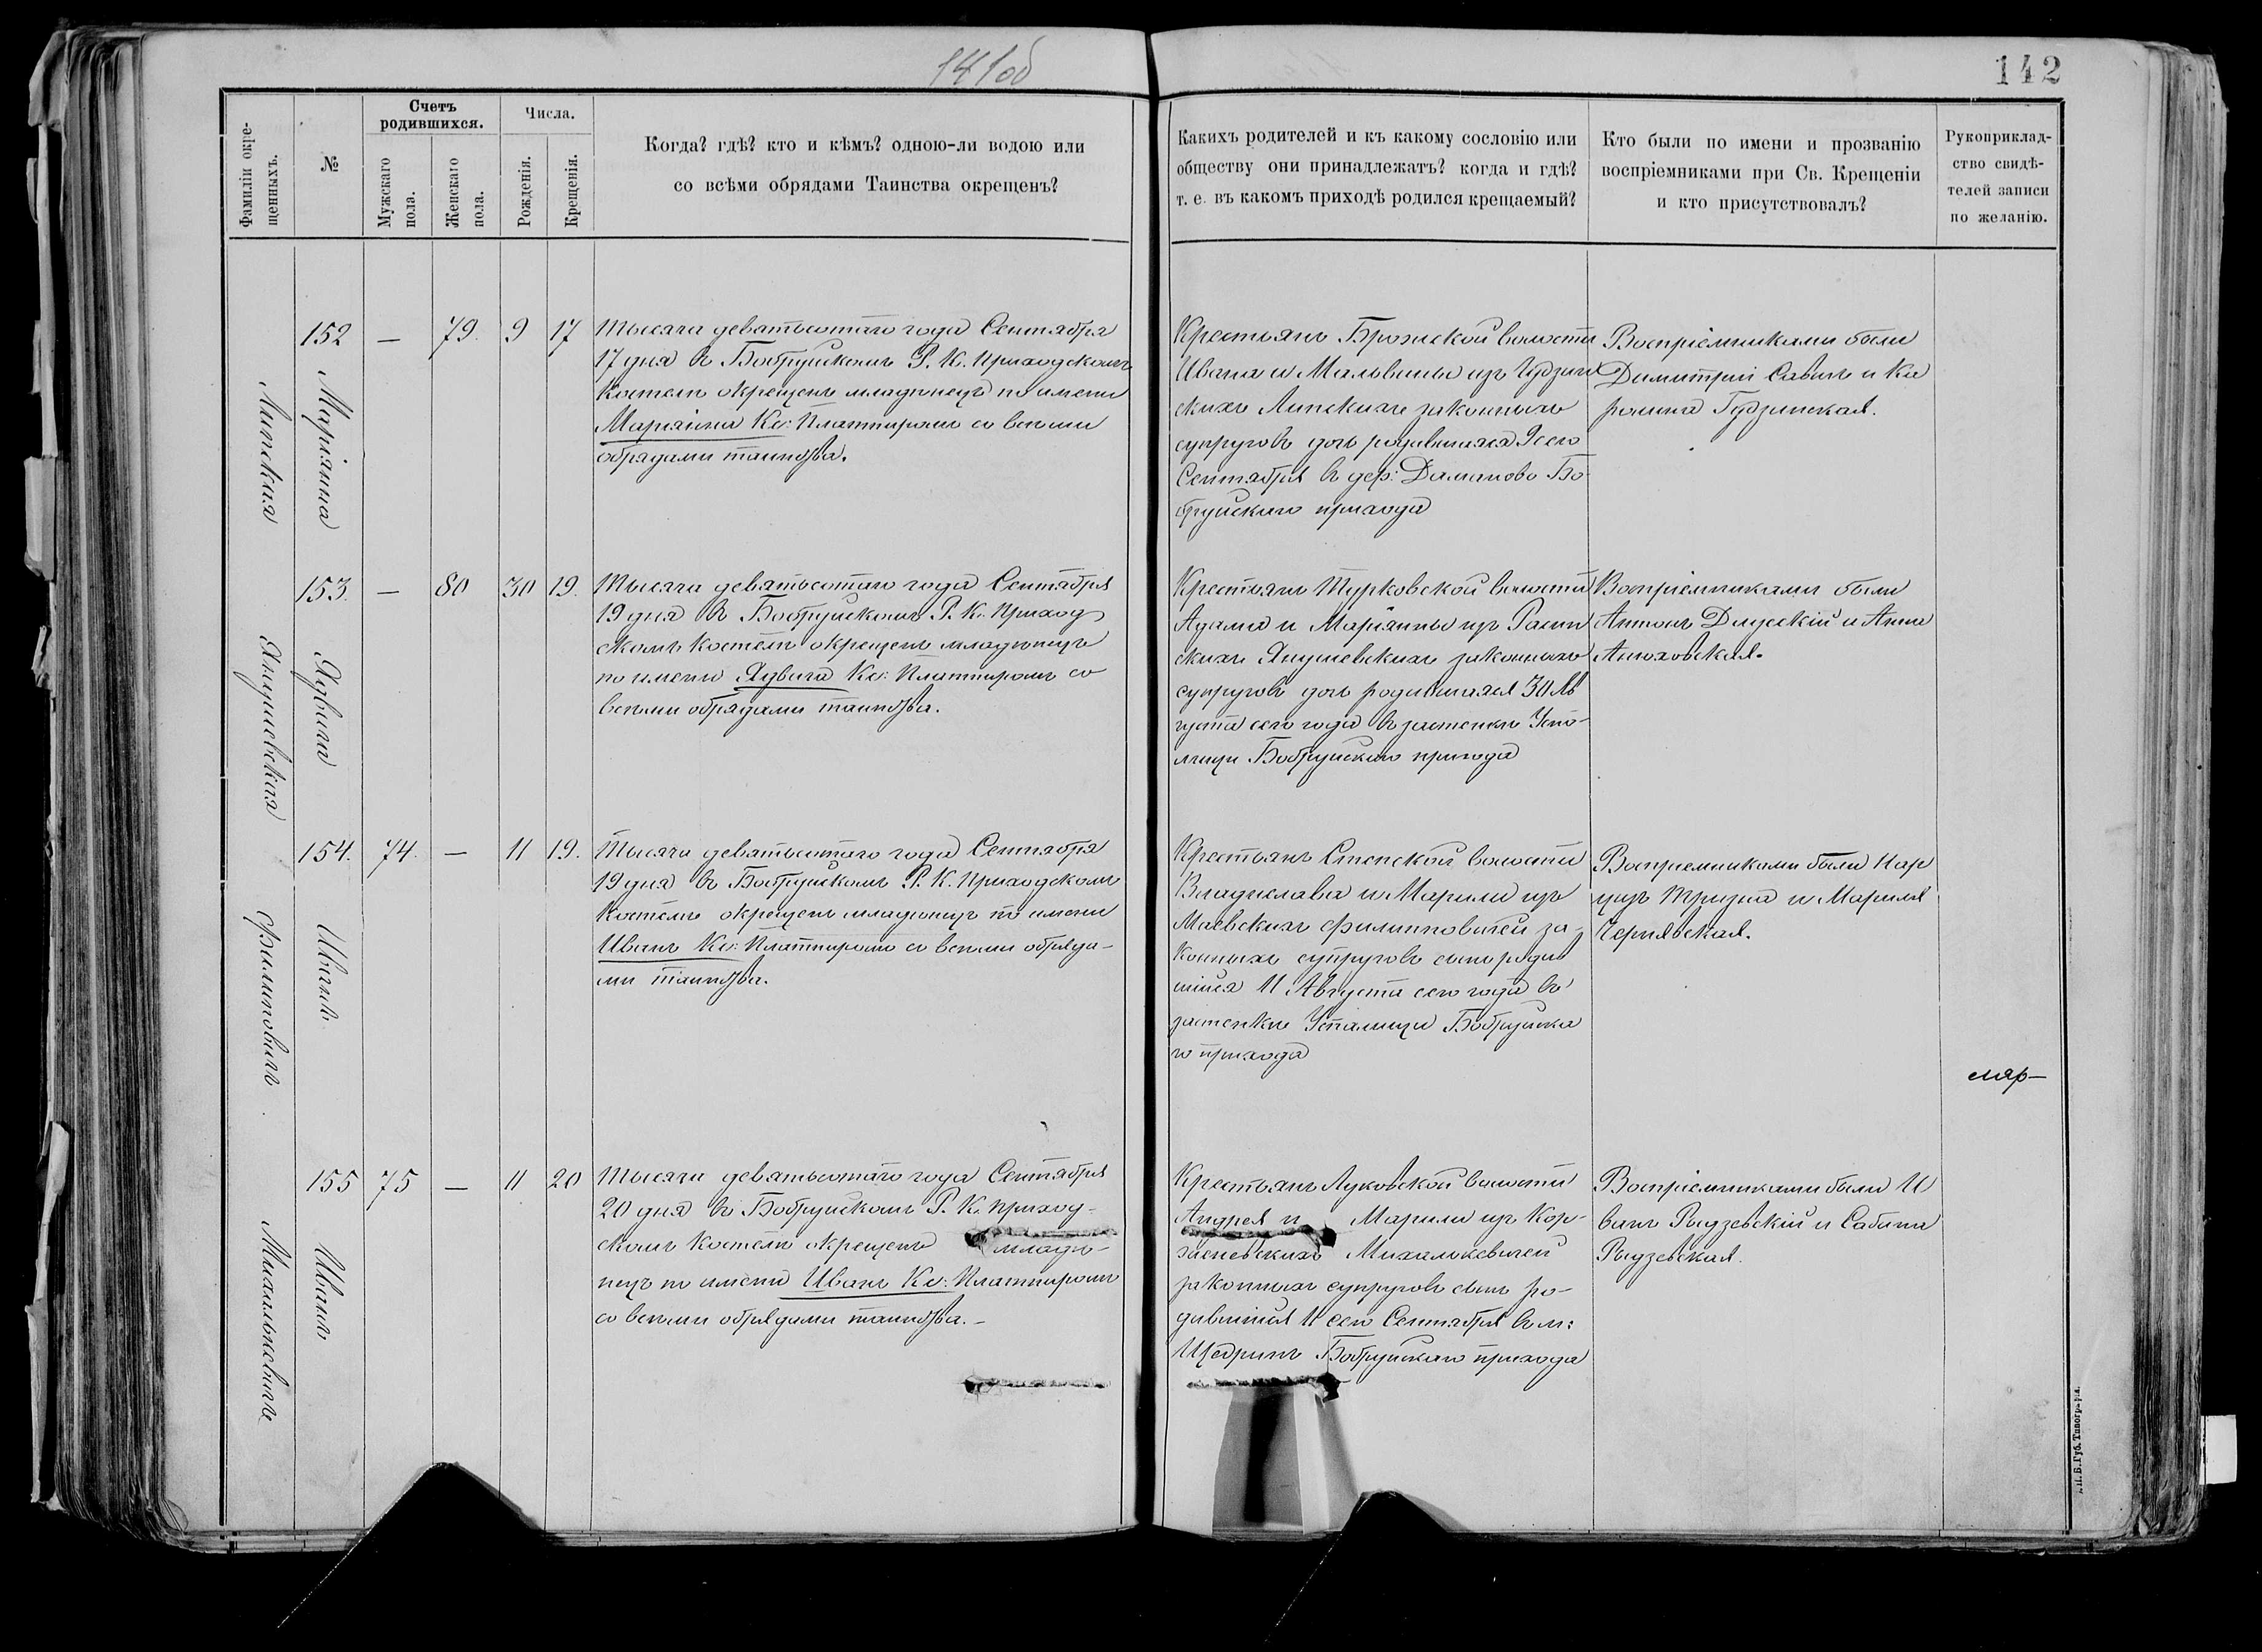 141об
142
Фамиліи окре-
щенныхъ.
№
Счетъ
родившихся.
Мужскаго
пола.
Женскаго
пола.
Числа.
Рожденія.
Крещенія.
Когда? гдѣ? кто и кѣмъ? одною-ли водою или
со всѣми обрядами Таинства окрещенъ?
Какихъ родителей и къ какому сословію или
обществу они принадлежатъ? когда и гдѣ?
т. е. въ какомъ приходѣ родился крещаемый?
Кто были по имени и прозванію
воспріемниками при Св. Крещеніи
и кто присутствовалъ?
Рукоприклад-
ство свидѣ-
телей записи
по желанію.
Липская
152
Маріянна
— 79. 9 17
Тысяча девятьсотаго года Сентября
17 дня въ Бобруйскомъ Р. К. Приходскомъ
Костелѣ окрещенъ младенецъ по имени
Маріанна Кс: Платтиромъ со всѣми
обрядами таинства.
Крестьянъ Брожской волости
Ивана и Мальвины изъ Гудзин
скихъ Липскихъ законныхъ
супруговъ дочь родившаяся 9 сего
Сентября въ дер: Даманово Бо-
бруйскаго прихода
Воспріемниками были
Димитрій Савичъ и Ка
ролина Гудзинская.
Янушевская
153.
Ядвига
— 80 30 19.
Тысяча девятьсотаго года Сентября
19 дня въ Бобруйскомъ Р. К. Приход
скомъ Костелѣ окрещенъ младенецъ
по имени Ядвига Кс: Платтиромъ со
всѣми обрядами таинства.
Крестьянъ Турковской волости
Адама и Маріянны изъ
скихъ Янушевскихъ законныхъ
супруговъ дочь родившаяся 30 Ав
густа сего года въ застенкѣ Уста-
лищи Бобруйскаго прихода
Воспріемниками были
Антонъ Длускій и Анна
Анюховская.
Филиповичъ
154.
Иванъ
74. — 11 19.
Тысяча девятьсотаго года Сентября
19 дня въ Бобруйскомъ Р. К. Приходскомъ
Костелѣ окрещенъ младенецъ по имени
Иванъ Кс: Платтиромъ со всѣми обряда-
ми таинства.
Крестьянъ Степской волости
Владислава и Марили изъ
Маевскихъ Филипповичей за-
конныхъ супруговъ сынъ родив
шійся 11 Августа сего года въ
застенкѣ Усталищи Бобруйска
го прихода
Воспріемниками были Нар
цизъ Тризна и Мариля
Чернявская.
Михалькевичъ
155
Иванъ
75 — 11 20
Тысяча девятьсотаго года Сентября
20 дня въ Бобруйскомъ Р. К. приход-
скомъ Костелѣ окрещенъ младе-
нецъ по имени Иванъ Кс: Платтиромъ
со всѣми обрядами таинства.-
Крестьянъ Луковской волости
Андрея и Марили изъ Кор-
женевскихъ Михалькевичей
законныхъ супруговъ сынъ ро-
дившійся 11 сего Сентября въ м:
Щедринѣ Бобруйскаго прихода
Воспріемниками были И
ванъ Рыдзевскій и Сабина
Рыдзевская.